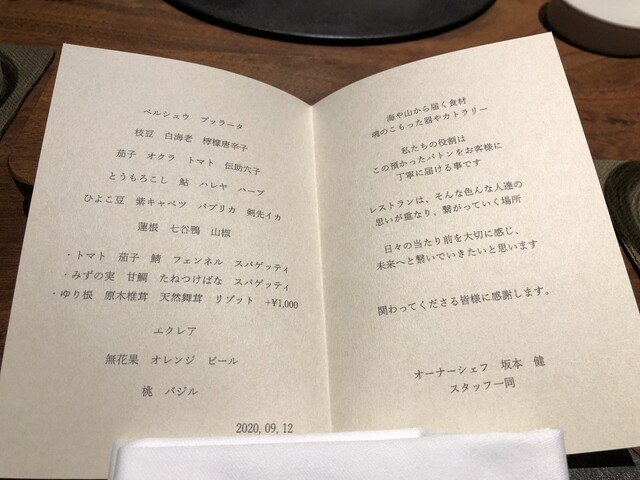 ペルシュウ ブッラータ
枝豆 白海老 檸檬唐辛子
茄子 オクラ トマト 伝助穴子
とうもろこし 鮎 ハレヤ ハーブ
ひよこ豆 紫キャベツ パプリカ 剣先イカ
蓮根 七谷鴨 山椒
・トマト 茄子 鯖 フェンネル スパゲッティ
・みずの実 甘鯛 たねつけばな スパゲッティ
・ゆり根 原木椎茸 天然舞茸 リゾット +¥1,000
エクレア
無花果 オレンジ ビール
桃 バジル
2020,09,12
海や山から届く食材
魂のこもった器やカトラリー
私たちの役割は
この預かったバトンをお客様に
丁寧に届ける事です
レストランは、そんな色んな人達の
思いが重なり、繋がっていく場所
日々の当たり前を大切に感じ、
未来へと繋いでいきたいと思います
関わってくださる皆様に感謝します。
オーナーシェフ 坂本 健
スタッフ一同